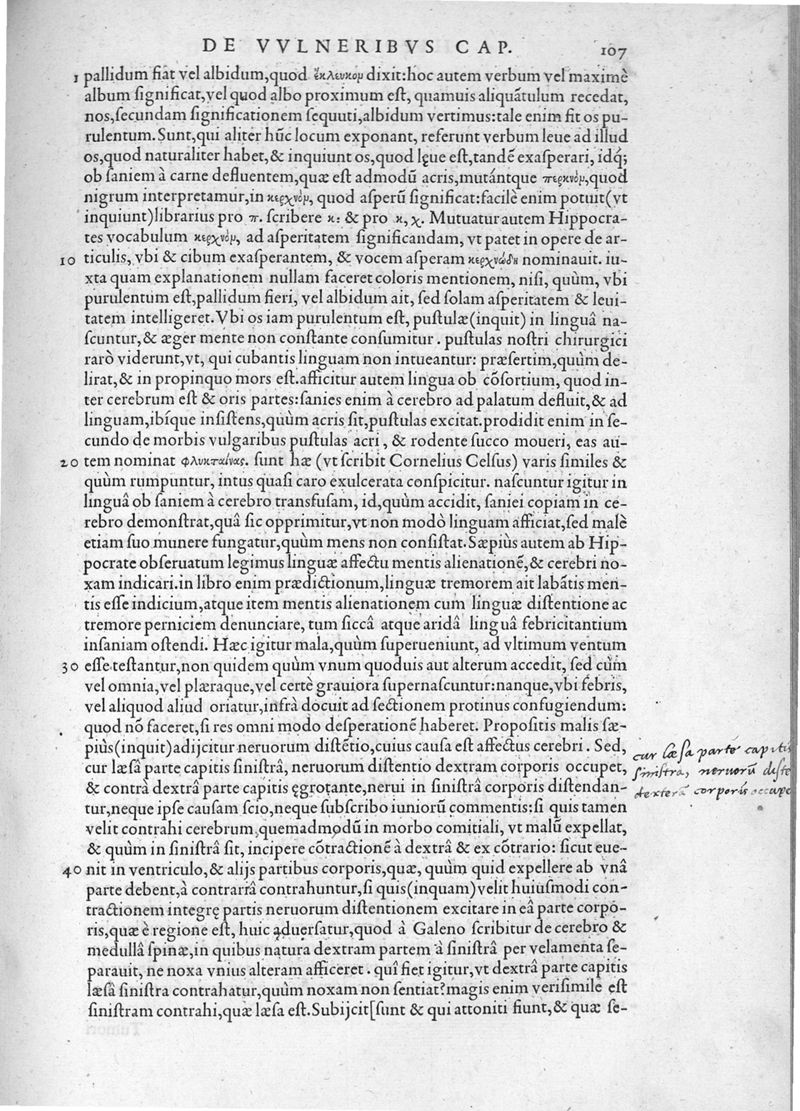 DE VVLNERIBVS CAP. 107
1 pallidum fiat vel albidum,quod ἔκλευκομ dixit:hoc autem verbum vel maximè
album ſignificat,vel quod albo proximum eſt, quamuis aliquãtulum recedat,
nos,ſecundam ſignificationem ſequuti,albidum vertimus:tale enim fit os pu-
rulentum.Sunt,qui aliter hũc locum exponant, referunt verbum leue ad illud
os,quod naturaliter habet,& inquiunt os,quod lęue eſt,tandẽ exaſperari, idq́;
ob ſaniem à carne defluentem,quæ eſt admodũ acris,mutántque περκνὸμ,quod
nigrum interpretamur,in κερχνὸμ, quod aſperũ ſignificat:facilè enim potuit(vt
inquiunt)librarius pro π. ſcribere κ: & pro κ, χ. Mutuatur autem Hippocra-
tes vocabulum κερχνὸμ, ad aſperitatem ſignificandam, vt patet in opere de ar-
10 ticulis, vbi & cibum exaſperantem, & vocem aſperam κερχνώδη nominauit. iu-
xta quam explanationem nullam faceret coloris mentionem, niſi, quùm, vbi
purulentum eſt,pallidum fieri, vel albidum ait, ſed ſolam aſperitatem & leui-
tatem intelligeret.Vbi os iam purulentum eſt, puſtulæ(inquit) in linguâ na-
ſcuntur,& æger mente non conſtante conſumitur . puſtulas noſtri chirurgici
rarò viderunt,vt, qui cubantis linguam non intueantur: præſertim,quùm de-
lirat,& in propinquo mors eſt.afficitur autem lingua ob cõſortium, quod in-
ter cerebrum eſt & oris partes:ſanies enim à cerebro ad palatum defluit,& ad
linguam,ibíque inſiſtens,quùm acris ſit,puſtulas excitat.prodidit enim in ſe-
cundo de morbis vulgaribus puſtulas acri , & rodente ſucco moueri, eas au-
20 tem nominat φλυκταίνας. ſunt hæ (vt ſcribit Cornelius Celſus) varis ſimiles &
quùm rumpuntur, intus quaſi caro exulcerata conſpicitur. naſcuntur igitur in
linguâ ob ſaniem à cerebro transfuſam, id,quùm accidit, ſaniei copiam in ce-
rebro demonſtrat,quâ ſic opprimitur,vt non modò linguam afficiat,ſed malè
etiam ſuo munere fungatur,quùm mens non conſiſtat.Sæpiùs autem ab Hip-
pocrate obſeruatum legimus linguæ affectu mentis alienationẽ,& cerebri no-
xam indicari.in libro enim prædictionum,linguæ tremorem ait labãtis men-
tis eſſe indicium,atque item mentis alienationem cum linguæ diſtentione ac
tremore perniciem denunciare, tum ſiccâ atque aridâ linguâ febricitantium
inſaniam oſtendi. Hæc igitur mala,quùm ſuperueniunt, ad vltimum ventum
30 eſſe teſtantur,non quidem quùm vnum quoduis aut alterum accedit, ſed cùm
vel omnia,vel plæraque,vel certè grauiora ſupernaſcuntur:nanque,vbi febris,
vel aliquod aliud oriatur,infrà docuit ad ſectionem protinus confugiendum:
quod nõ faceret,ſi res omni modo deſperationẽ haberet. Propoſitis malis ſæ-
piùs(inquit)adijcitur neruorum diſtẽtio,cuius cauſa eſt affectus cerebri . Sed,
cur læſâ parte capitis ſiniſtrâ, neruorum diſtentio dextram corporis occupet,
& contrà dextrâ parte capitis ęgrotante,nerui in ſiniſtrâ corporis diſtendan-
tur,neque ipſe cauſam ſcio,neque ſubſcribo iuniorũ commentis:ſi quis tamen
velit contrahi cerebrum,quemadmodũ in morbo comitiali, vt malũ expellat,
& quùm in ſiniſtrâ ſit, incipere cõtractionẽ à dextrâ & ex cõtrario: ſicut eue-
40 nit in ventriculo,& alijs partibus corporis,quæ, quùm quid expellere ab vnâ
parte debent,à contrarrâ contrahuntur,ſi quis(inquam)velit huiuſmodi con-
tractionem integrę partis neruorum diſtentionem excitare in eâ parte corpo-
ris,quæ è regione eſt, huic aduerſatur,quod à Galeno ſcribitur de cerebro &
medullâ ſpinæ,in quibus natura dextram partem à ſiniſtrâ per velamenta ſe-
parauit, ne noxa vnius alteram afficeret . quî fiet igitur,vt dextrâ parte capitis
læſâ ſiniſtra contrahatur,quùm noxam non ſentiat?magis enim veriſimile eſt
ſiniſtram contrahi,quæ læſa eſt.Subijcit[ſunt & qui attoniti fiunt,& quæ ſe-
cur læſa parte capitis
ſiniſtra, neruorũ diſte
dexterã corporis occupe